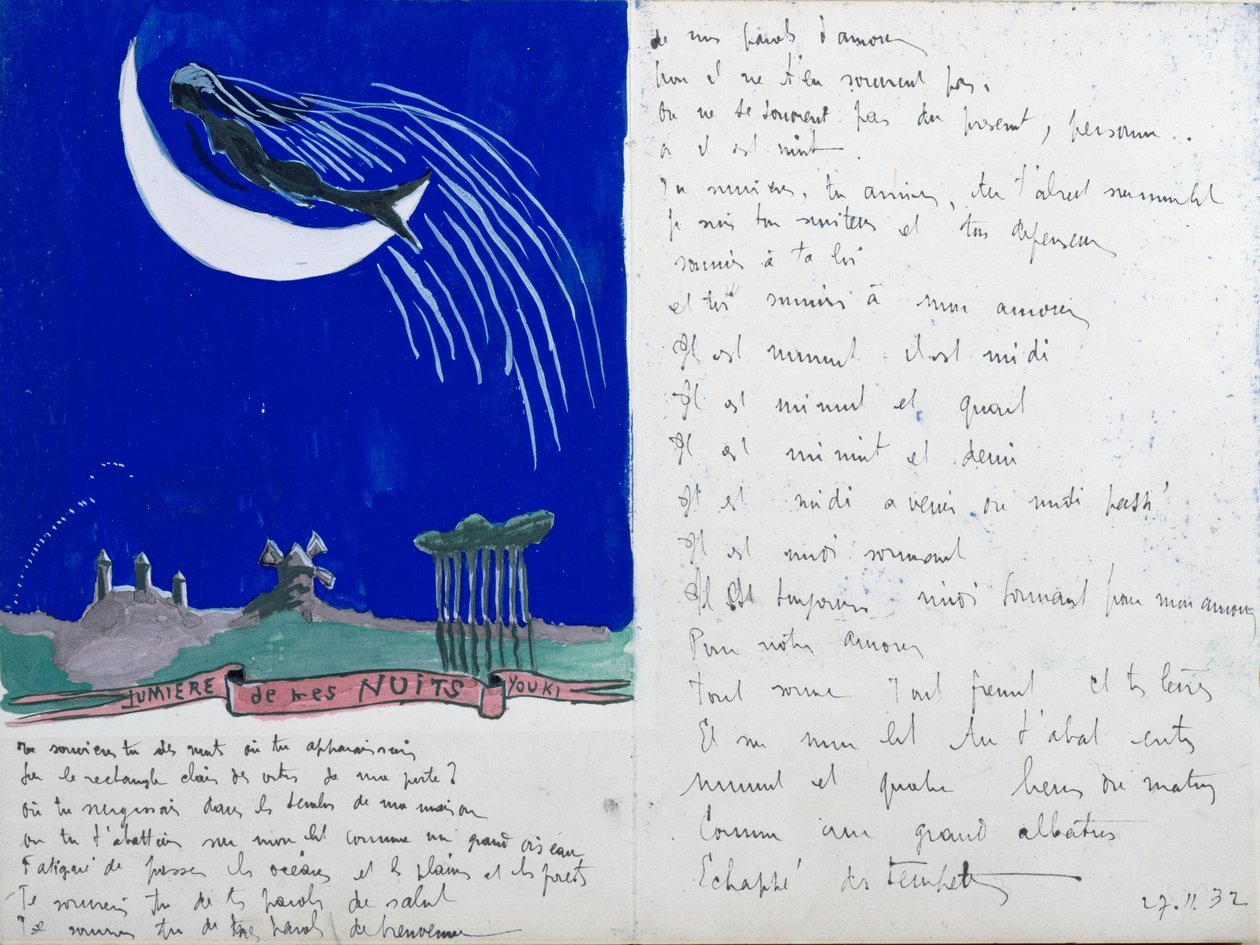 LUMIÈRE de mes NUITS YOUKI
Te souviens tu des nuits où tu apparaissais
Sur le rectangle clair des vitres de ma porte?
Où tu surgissais dans les ténèbres de ma maison
où tu t'abattais sur mon lit comme un grand oiseau
Fatigué de passer les océans et les plaines et les forêts
Te souviens tu de tes paroles de salut
Te souviens tu de mes paroles de bienvenue
de nos paroles d'amour
Non il ne t'en souvient pas.
On ne se souvient pas du présent, personne.
Or il est nuit
Tu arrives, tu t'abats sur mon lit
Je suis ton serviteur et ton défenseur
soumis à ta loi
et toi soumise à mon amour
Il est minuit il est midi
Il est minuit et quart
Il est minuit et demi
Il est midi à venir ou midi passé
Il est midi sonnant
Il est toujours midi sonnant pour mon amour
Pour notre amour
Tout sonne Tout frémit et tes lèvres
Et sur mon lit tu t'abats entre
minuit et quatre heures du matin
Comme un grand albatros
Echappé des tempêtes
27.11.32